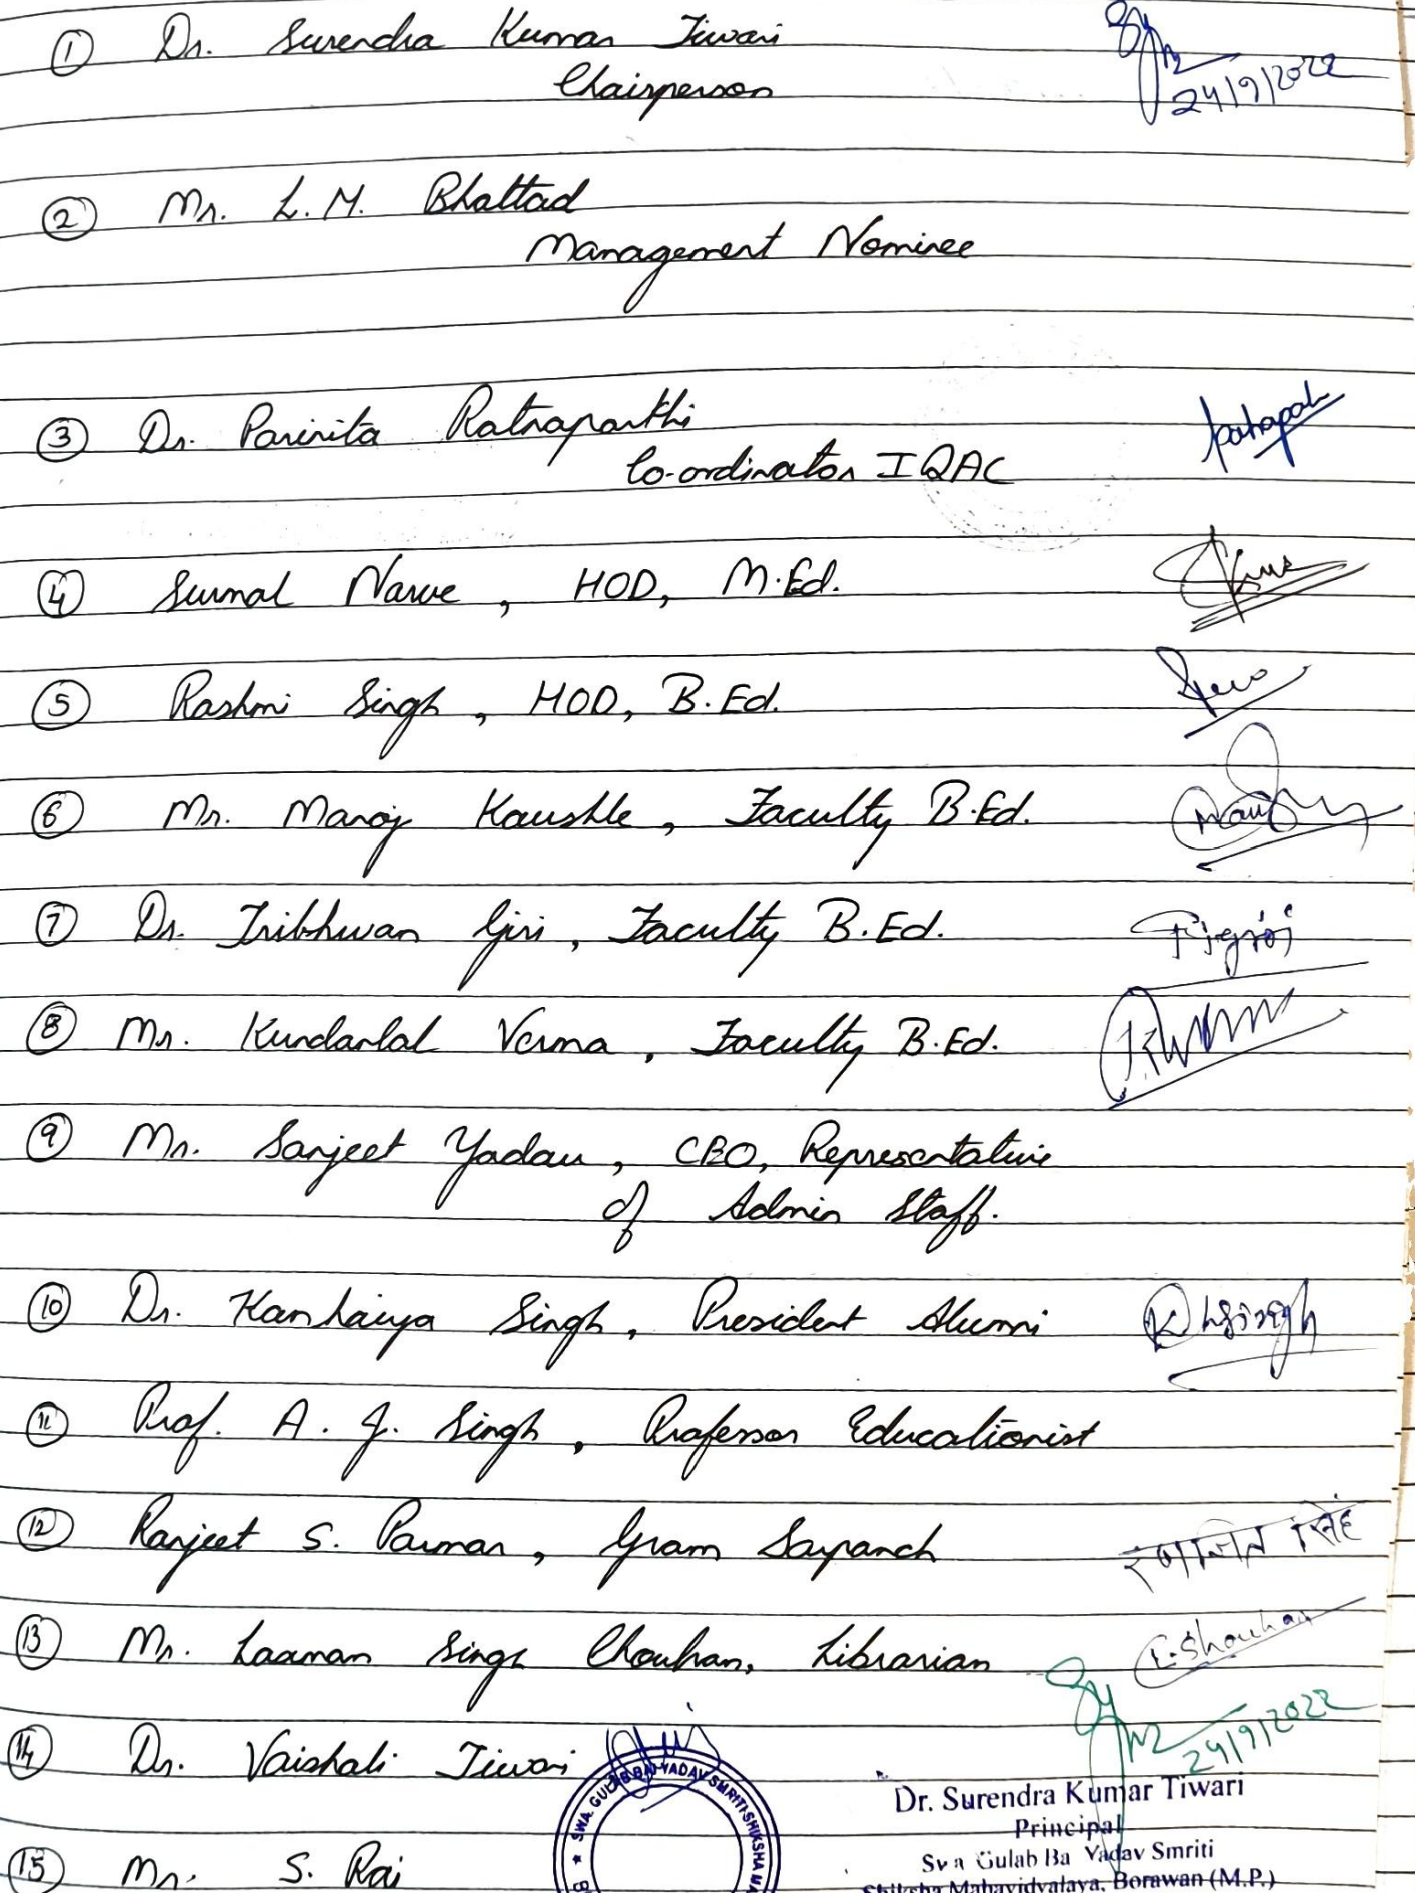 ① Dr. Surendra Kumar Tiwari
Chairperson
24/9/2022
② Mr. L.M. Bhattad
Management Nominee
③ Dr. Parinita Ratnaparkhi
Co-ordinator IQAC
④ Surmal Narve, HOD, M.Ed.
⑤ Rashmi Singh, HOD, B.Ed.
⑥ Mr. Manoj Kaushle, Faculty B.Ed.
⑦ Dr. Tribhwan Giri, Faculty B.Ed.
⑧ Mr. Kundanlal Verma, Faculty B.Ed.
⑨ Mr. Sanjeet Yadav, CEO, Representative
of Admin Staff.
⑩ Dr. Kanhaiya Singh, President Alumni
⑪ Prof. A. J. Singh, Professor Educationist
⑫ Ranjeet S. Parmar, Gram Sarpanch
⑬ Mr. Laxman Singh Chouhan, Librarian
24/9/2022
⑭ Dr. Vaishali Tiwari
SWA. GULAB BAI YADAV SMRITI SHIKSHA
Dr. Surendra Kumar Tiwari
Principal
Swa Gulab Ba Yadav Smriti
Shiksha Mahavidyalaya, Borawan (M.P.)
⑮ Mr. S. Rai